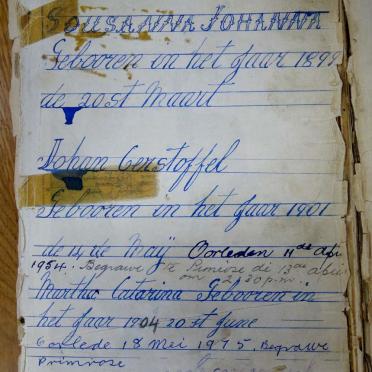 Sousanna Johanna
Gebooren in het Jaar 1899
de 20st Maart
Johan Cerstoffel
Gebooren in het Jaar 1901
de 14 de Maÿ Oorleden 11de Apr
1954. Begrawe te Primrose di 13de April
om 2.30 p.m.
Martha Catarina Gebooren in
het Jaar 1904 20st June
Oorlede 18 Mei 1975. Begrawe
Primrose